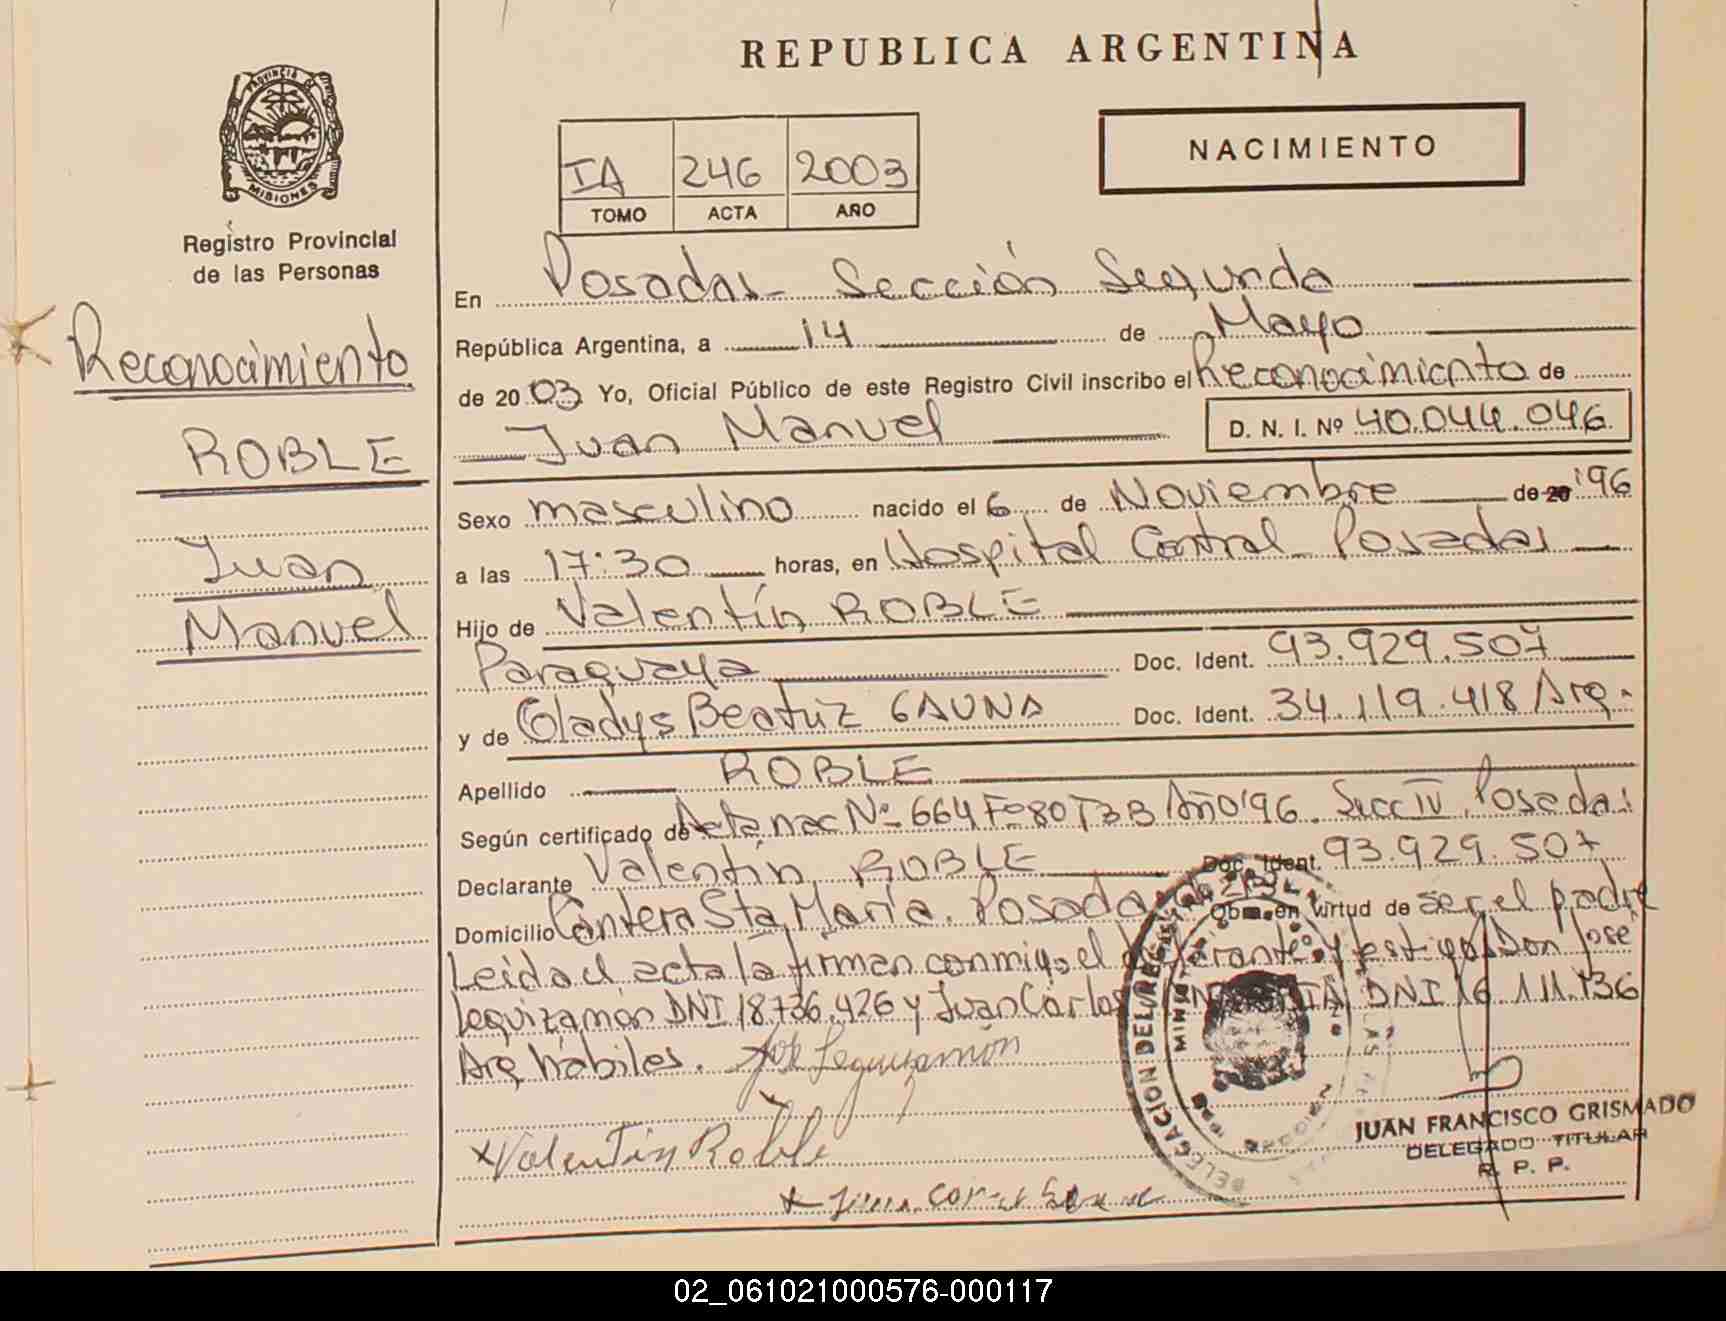 REPUBLICA ARGENTINA
PROVINCIA DE
MISIONES
Registro Provincial
de las Personas
IA 246 2003
TOMO ACTA AÑO
NACIMIENTO
Reconocimiento
ROBLE
Juan
Manuel
En Posadas - Sección Segunda
República Argentina, a 14 de Mayo
de 2003 Yo, Oficial Público de este Registro Civil inscribo el Reconocimiento de
Juan Manuel D. N. I. Nº 40.044.046
Sexo masculino nacido el 6 de Noviembre de 20 '96
a las 17:30 horas, en Hospital Central Posadas
Hijo de Valentín ROBLE
Paraguaya Doc. Ident. 93.929.507
y de Gladys Beatriz GAUNA Doc. Ident. 34.119.418 Arg.
Apellido ROBLE
Según certificado de Acta nac Nº 664 Fº 80 T3B Año '96. Secc IV. Posadas
Declarante Valentín ROBLE Doc. Ident. 93.929.507
Domicilio Cantera Sta María. Posadas Obra en virtud de ser el padre
Leida el acta la firman conmigo el declarante y testigos Don José
Leguizamón DNI 18.736.426 y Juan Carlos DNI 16.111.736
Arg hábiles. José Leguizamón
x Valentín Roble
x Juan Car
DELEGACION DEL REG
MINIST
JUAN FRANCISCO GRISMADO
DELEGADO TITULAR
R. P. P.
02_061021000576-000117